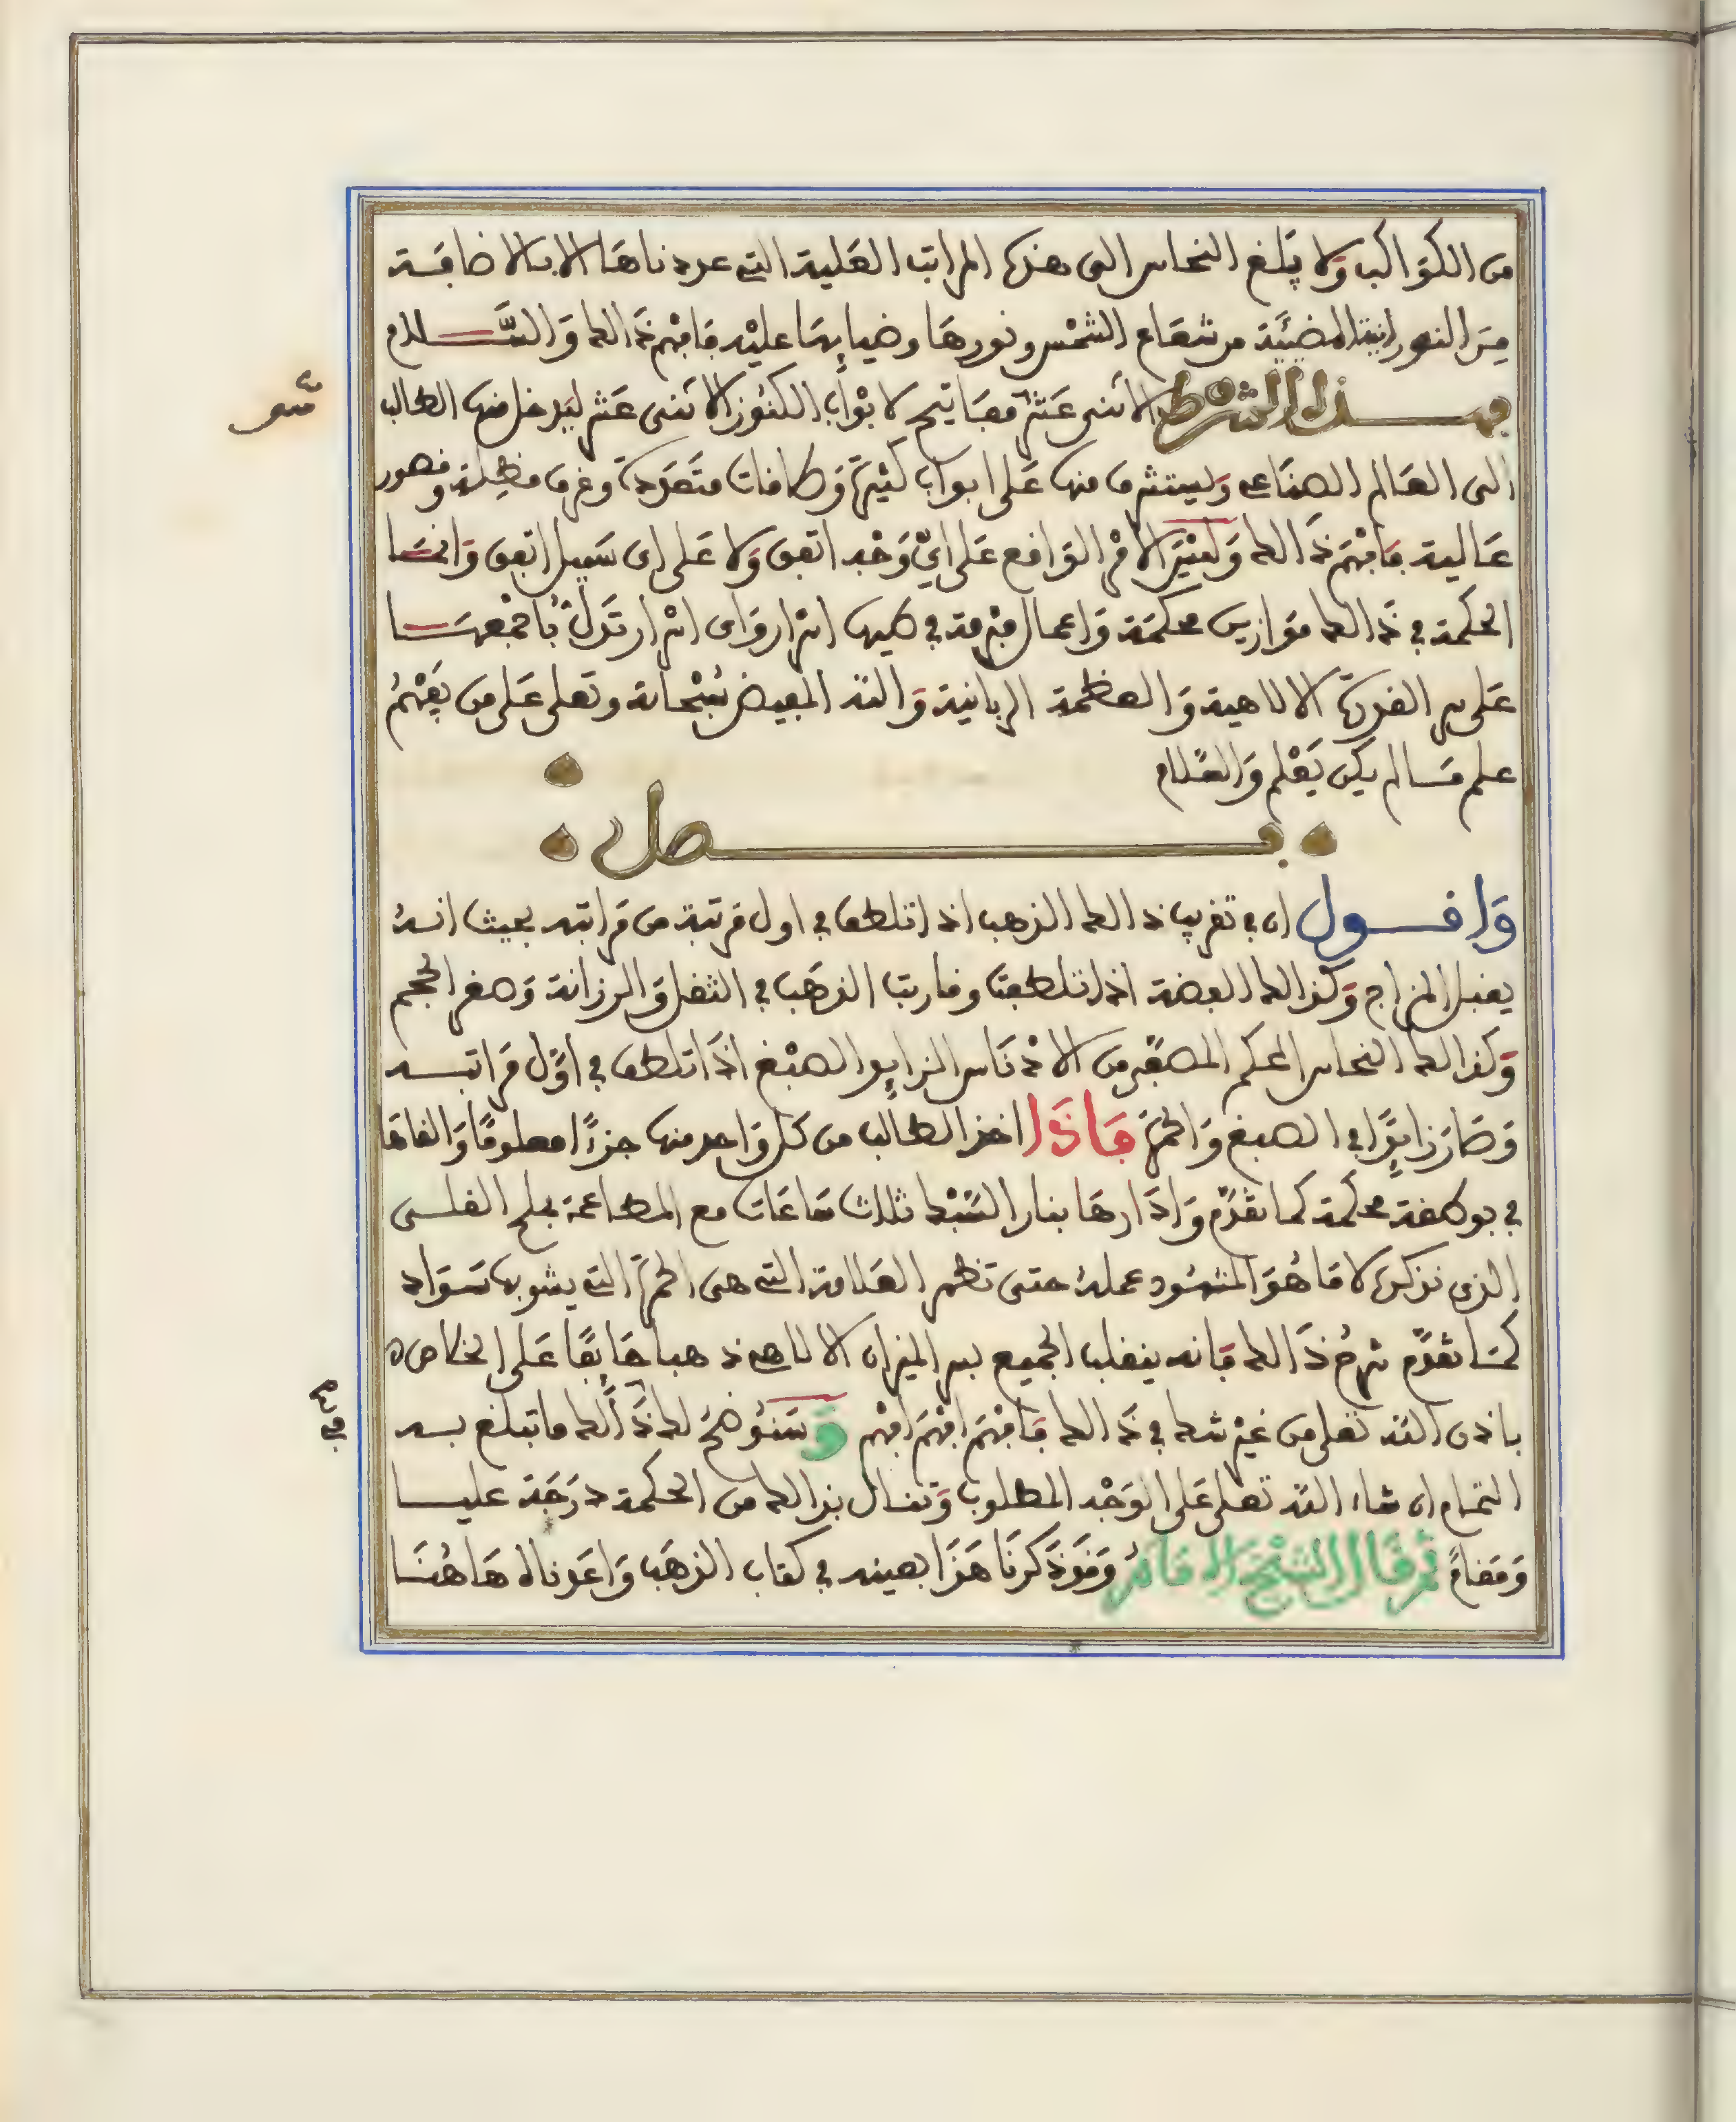 من الكواكب ولا يبلغ النحاس الى هذه المراتب العلية التي عددناها الا بالاضافة
من النورانية المضيئة من شعاع الشمس ونورها وضيايها عليه فافهم ذالك والســلام
فهــذا الشرط الاثنى عشر مفاتيح لابواب الكنوز الاثنى عشر ليدخل منها الطالب
الى العالم الصناعي وليستشرف منها على ابواب كثيرة وطاقات متعددة وغرف مظللة وقصور
عالية فافهم ذالك وليس الامر الواقع على اي وجه اتفق ولا على اى سبيل اتفق وانما
الحكمة في ذالك موازين محكمة واعمال مبرمة في طيها اسرار واى اسرار تدل باجمعها
على سر القدرة الالاهية والعظمة الربانية والله المفيض سبحانه وتعلى على من يفهم
علم مالم يكن يعلم والسلام
فــصل
واقــول ان في تقريب ذالك الذهب اذا تلطف في اول مرتبة من مراتبه بحيث انه
يقبل المزاج وكذالك الفضة اذا تلطفت وقاربت الذهب في الثقل والرزانة وصغر الحجم
وكذالك النحاس المحكم المصفى من الادناس الزايد الصبغ اذا تلطف في اول مراتبه
وصار زايدا في الصبغ والحمرة فاذا اخذ الطالب من كل واحد منها جزءا معلوما والقاها
في بوطقة محكمة كما تقدم وادارها بنار السبك ثلاث ساعات مع المطاعمة بملح القلى
الذي نذكره لا ما هو المشهود عمله حتى تظهر العلامة التي هى الحمرة التي يشوبها سواد
كما تقدم شرح ذالك فانه ينقلب الجميع بسر الميزان الالاهي ذهبا خالصا على الخلاص
باذن الله تعلى من غير شك في ذالك فافهم افهم افهم وسنوضح لك ذالك ما تبلغ بــه
التمام ان شاء الله تعلى على الوجه المطلوب وتنال بذالك من الحكمة درجة عليــا
ومقام ثم قال الشيخ الامام وقد ذكرنا هذا بعينه في كتاب الذهب واعدناه هاهنا